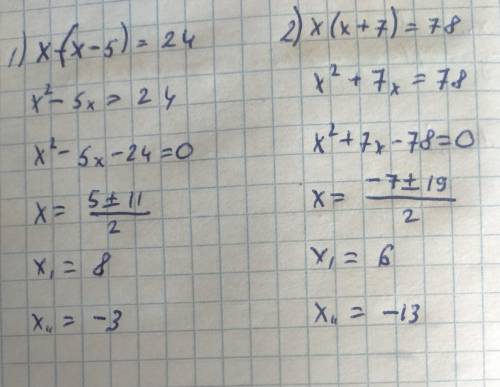 1) x·(x-5) = 24
x² - 5x = 24
x² - 5x - 24 = 0
x = (5 ± 11)/2
x₁ = 8
x₁₁ = -3
2) x(x+7) = 78
x² + 7x = 78
x² + 7x - 78 = 0
x = (-7 ± 19)/2
x₁ = 6
x₁₁ = -13